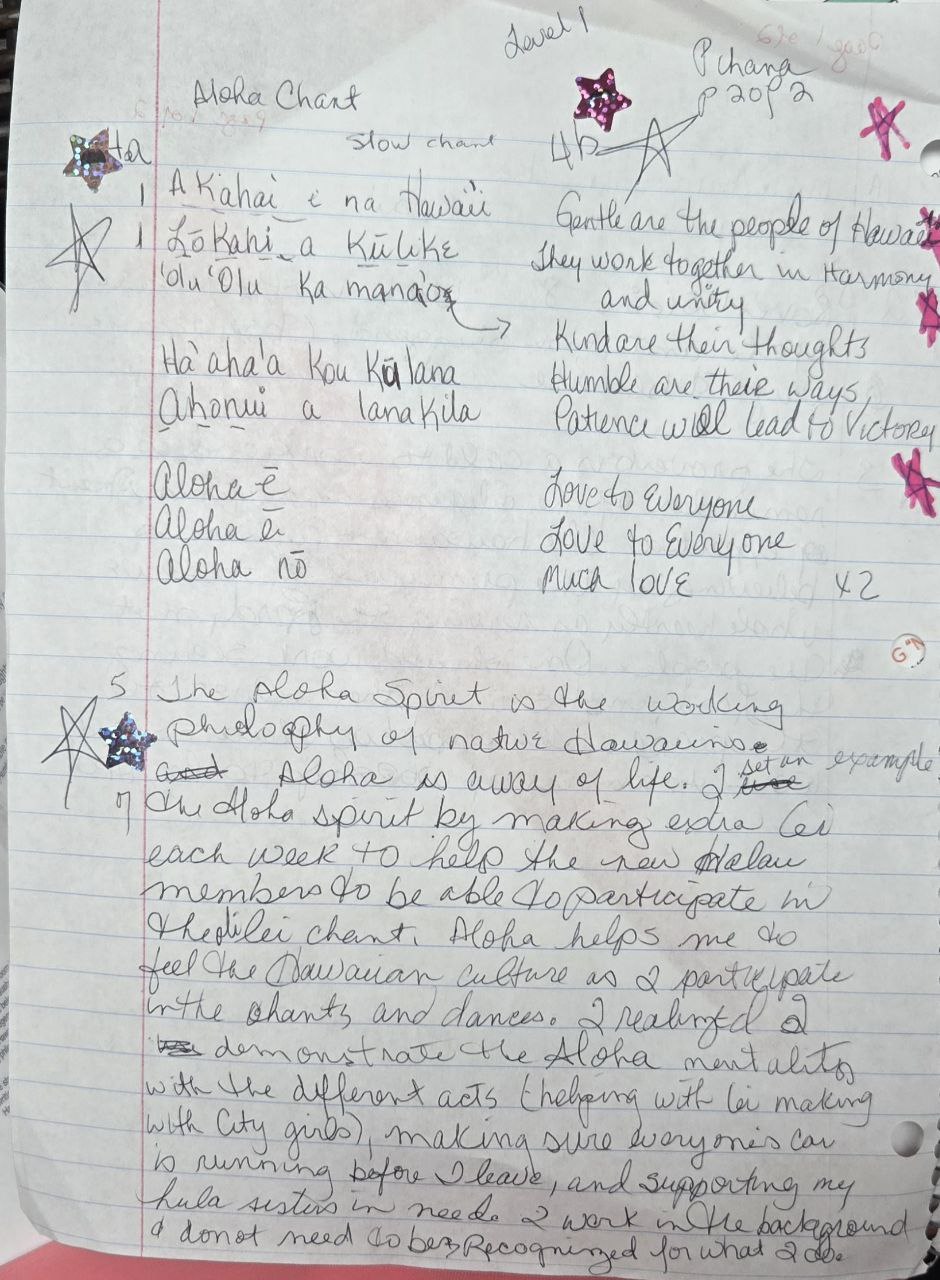 Level 1
Pihana
p 2 of 2
Aloha Chant
4a
Slow chant
4b
1 A Kahai e na Hawaii
1 Lōkahi a Kūlike
'Olu 'Olu Ka mana'o
Ha'aha'a Kou Kūlana
Ahonui a lanakila
Aloha ē
Aloha ē
Aloha nō
Gentle are the people of Hawaii
They work together in Harmony
and unity
Kind are their thoughts
Humble are their ways,
Patience will lead to Victory
Love to Everyone
Love to Everyone
Much love x2
5 The Aloha Spirit is the working
philosophy of native Hawaiians
and Aloha is away of life. I set an example
7 the Aloha spirit by making extra lei
each week to help the new Halau
members to be able to participate in
the lei chant. Aloha helps me to
feel the Hawaiian culture as I participate
in the chants and dances. I realized I
demonstrate the Aloha mentality
with the different acts (helping with lei making
with City girls), making sure everyone's car
is running before I leave, and supporting my
hula sisters in need. I work in the background
& do not need to be Recognized for what I do.